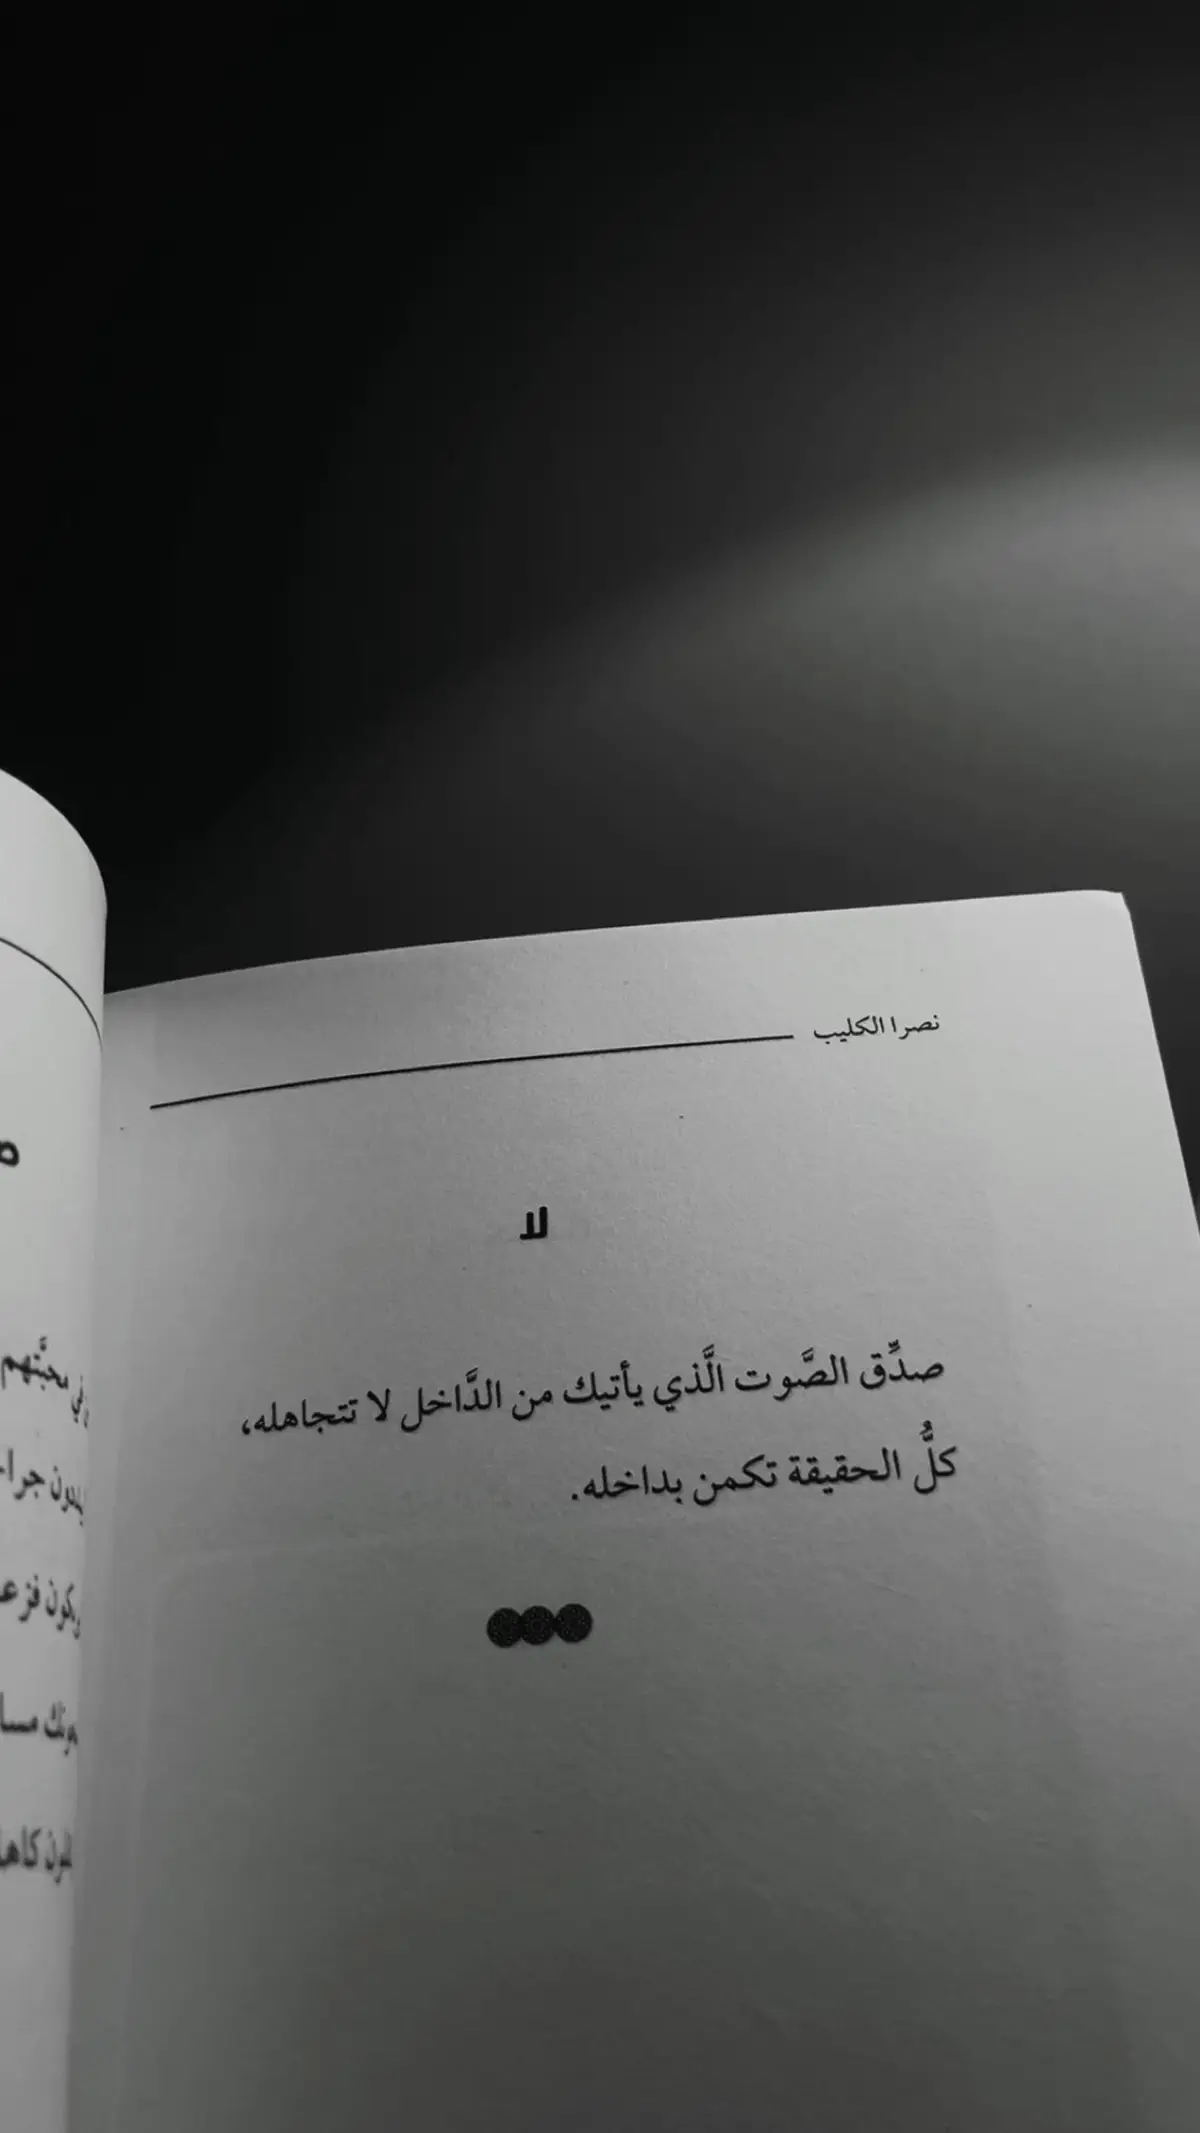 نصرا الكليب
لا
صدِّق الصَّوت الَّذي يأتيك من الدَّاخل لا تتجاهله،
كلُّ الحقيقة تكمن بداخله.
محبَّتهم
جرا
فزع
مسا